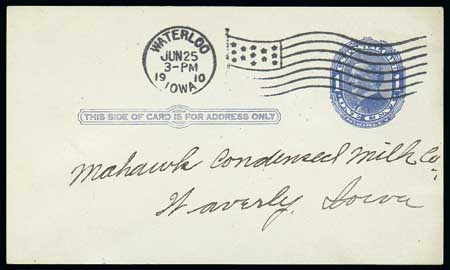 WATERLOO
JUN 25
3-PM
19 10
IOWA
THIS SIDE OF CARD IS FOR ADDRESS ONLY
Mohawk Condensed Milk Co.
Waverly, Iowa